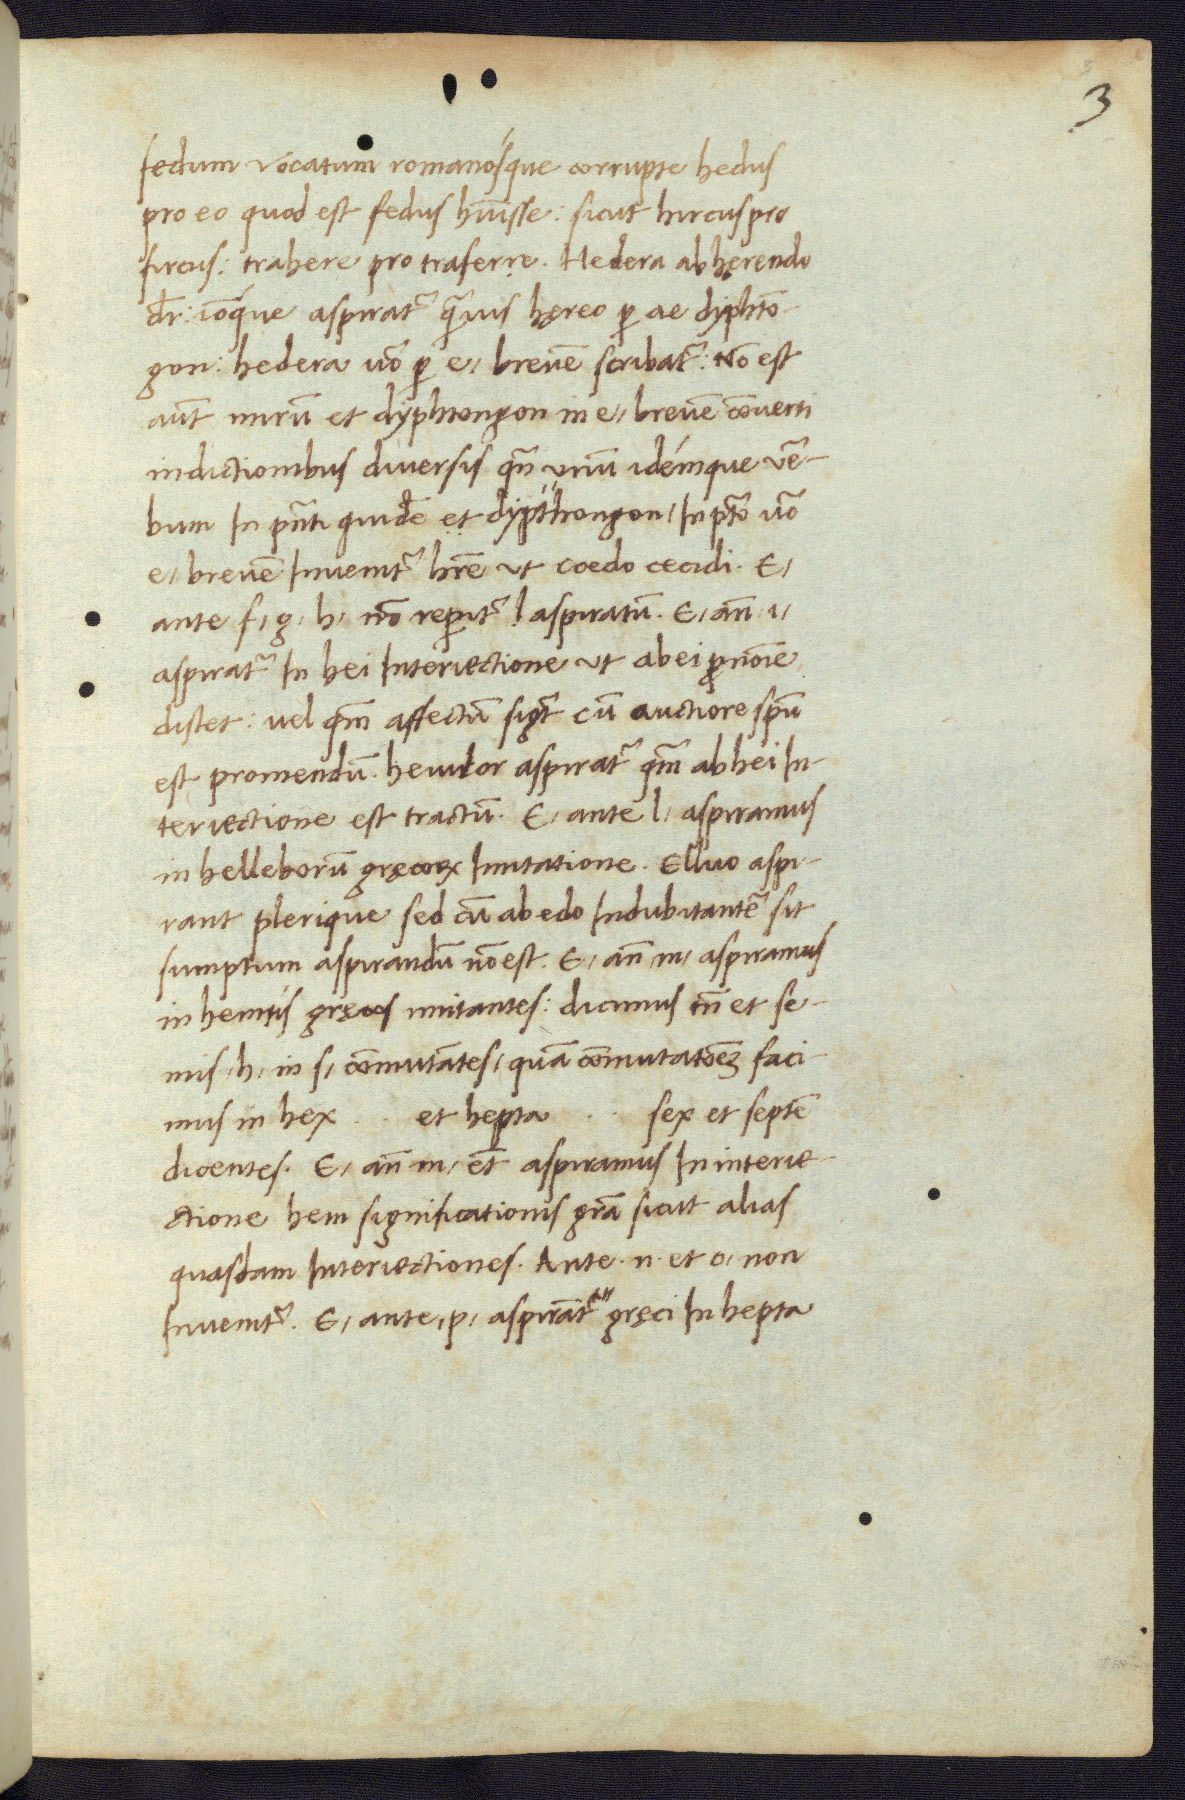 3
fedum vocatum romanosque corrupte hedus
pro eo quod est fedus hũisse: sicut hircus pro
fircus: trahere pro traferre. Hedera ab hęrendo
dr̃: ioq̃ue aspirat᷑ q̃uis hęreo ꝑ ae dyphtõ-
gon: hedera ũo ꝑ e, breuẽ scribat᷑: Nõ est
aũt mirũ et dyphtongon in e, breuẽ cõuerti
in dictionibus diuersis qñ vnũ idémque vẽ-
bum In pñti quidẽ et dypthongon, In p̃to ũo
e, breuẽ Inuenit᷑ hr̃e vt coedo cecidi. E,
ante f, g, h, nõ reperit᷑ l aspiratũ. E, añ i,
aspirat᷑ In hei Interiectione vt ab ei ꝓnoĩe
distet: uel qm̃ affectũ sig̃t cũ auctiore spũ
est promendũ. heiulor aspirat᷑ qm̃ ab hei In-
teriectione est tractũ. E, ante l, aspiramus
in helleborũ gręcoꝝ Imitatione. Elluo aspi-
rant plerique sed cũ ab edo Indubitantẽ sit
sumptum aspirandũ nõ est. E, añ m, aspiramus
in hemiis gręcos imitantes: dicimus tñ et se-
mis, h, in s, cõmutãtes, quã cõmutatõeʒ faci-
mus in hex . . et hepta . . sex et septẽ
dicentes. E, añ m, et̃ aspiramus In interie-
ctione hem significationis gr̃a sicut alias
quasdam Interiectiones. Ante. n. et o, non
Inuenit᷑. E, ante, p, aspirãt᷑ gręci In hepta